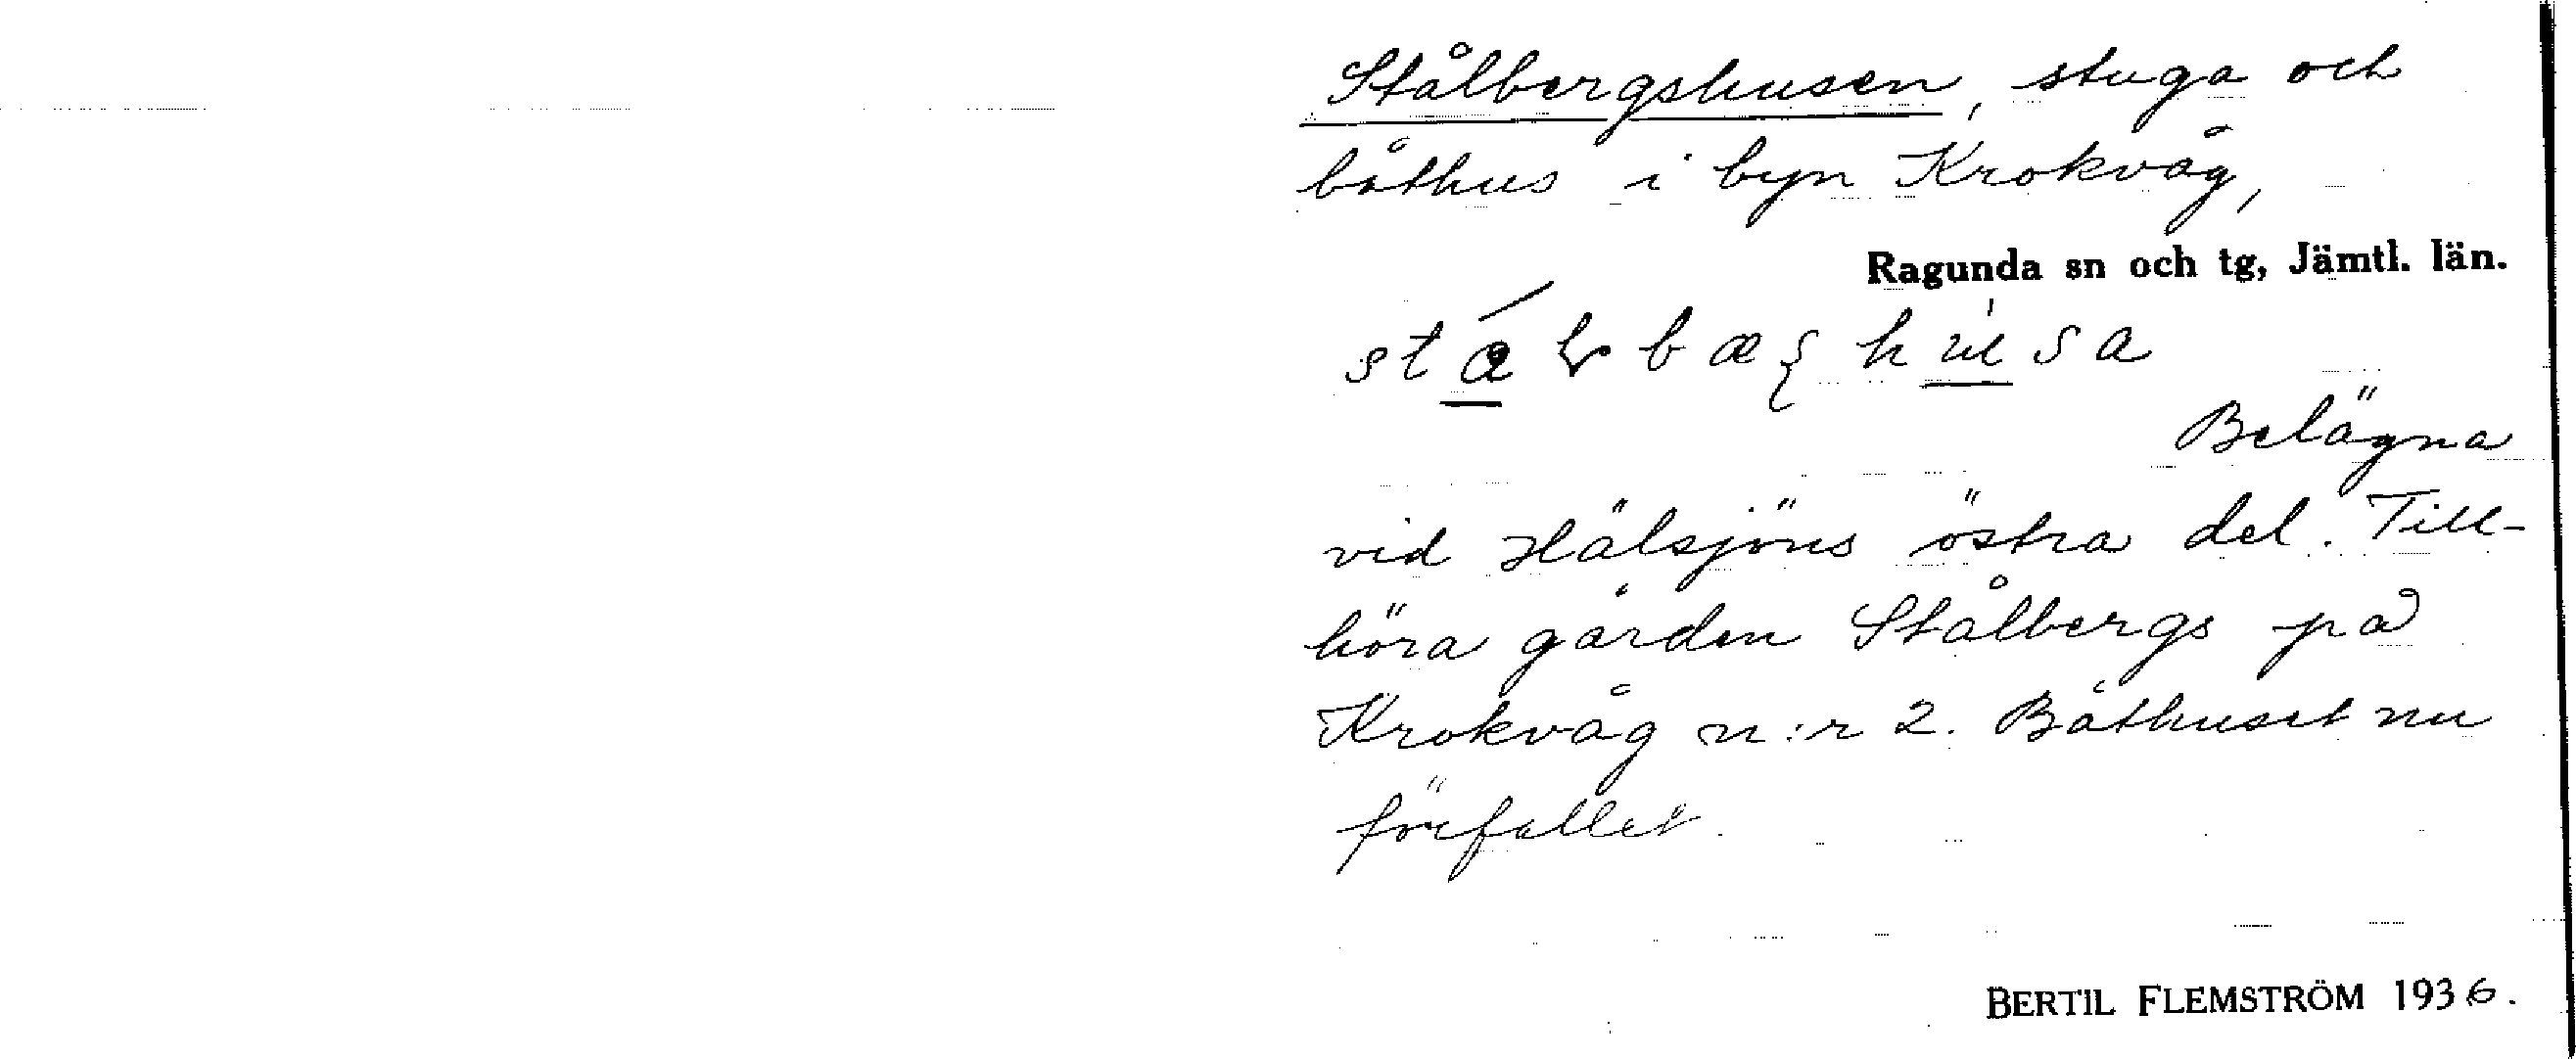 Stålbergshusen, stuga och
båthus i byn Krokvåg,
Ragunda sn och tg, Jämtl. län.
Belägna
vid Hälsjöns östra del. Till-
höra gården Stålbergs på
Krokvåg n:r 2. Båthuset nu
förfallet.
BERTIL FLEMSTRÖM 1936.